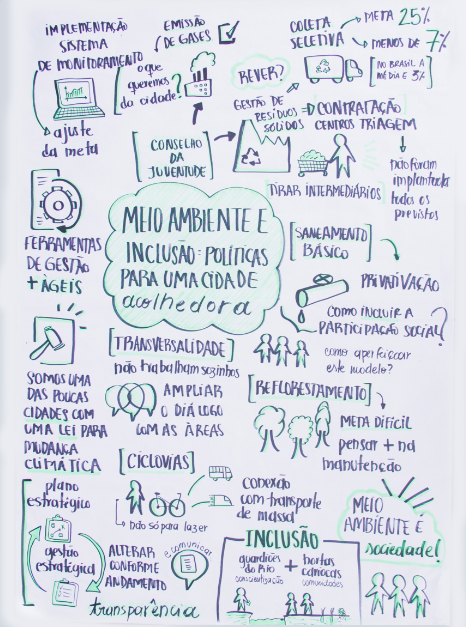 IMPLEMENTAÇÃO
SISTEMA
DE MONITORAMENTO
ajuste
da meta
EMISSÃO
DE GASES
o que
queremos
da cidade?
CONSELHO
DA
JUVENTUDE
COLETA
SELETIVA
META 25%
MENOS DE 7%
NO BRASIL A
MÉDIA É 3%
REVER?
GESTÃO DE
RESÍDUOS
SÓLIDOS
CONTRATAÇÃO
CENTROS TRIAGEM
não foram
implantados
todos os
previstos
TIRAR INTERMEDIÁRIOS
MEIO AMBIENTE E
INCLUSÃO: POLÍTICAS
PARA UMA CIDADE
acolhedora
FERRAMENTAS
DE GESTÃO
+ ÁGEIS
SANEAMENTO
BÁSICO
PRIVATIVAÇÃO
COMO INCLUIR A
PARTICIPAÇÃO SOCIAL?
como aperfeiçoar
este modelo?
SOMOS UMA
DAS POUCAS
CIDADES COM
UMA LEI PARA
MUDANÇA
CLIMÁTICA
TRANSVERSALIDADE
não trabalham sozinhos
AMPLIAR
O DIÁLOGO
COM AS ÁREAS
REFLORESTAMENTO
META DIFÍCIL
pensar + na
manutenção
CICLOVIAS
não só para lazer
conexão
com transporte
de massa
plano
estratégico
gestão
estratégica
ALTERAR
CONFORME
ANDAMENTO
e comunicar
transparência
INCLUSÃO
guardiões
do Rio
conscientização
+
hortas
cariocas
comunidades
MEIO
AMBIENTE É
sociedade!